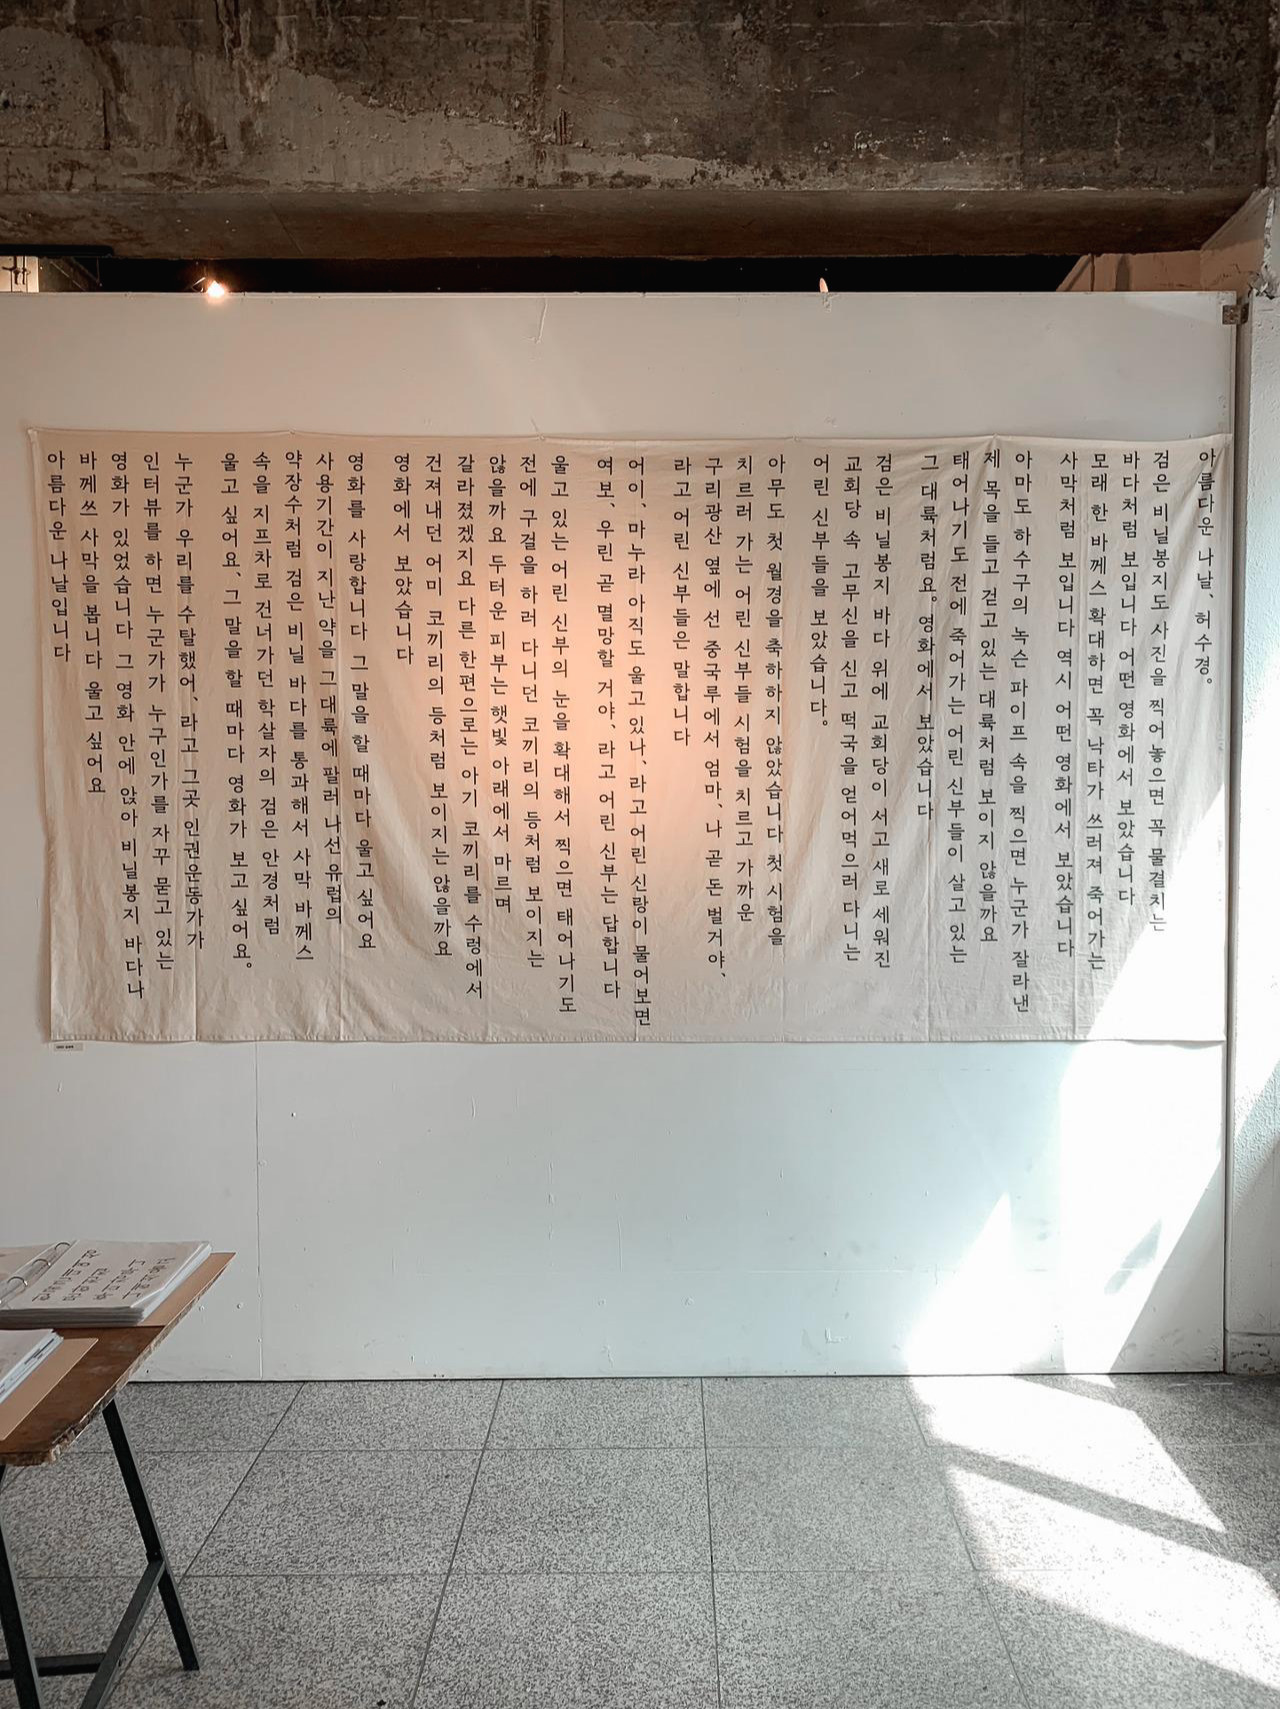 아름다운 나날、허수경。
검은 비닐봉지도 사진을 찍어놓으면 꼭 물결치는
바다처럼 보입니다 어떤 영화에서 보았습니다
모래 한 바께스 확대하면 꼭 낙타가 쓰러져 죽어가는
사막처럼 보입니다 역시 어떤 영화에서 보았습니다
아마도 하수구의 녹슨 파이프 속을 찍으면 누군가 잘라낸
제 목을 들고 걷고 있는 대륙처럼 보이지 않을까요
태어나기도 전에 죽어가는 어린 신부들이 살고 있는
그 대륙처럼요。영화에서 보았습니다
검은 비닐봉지 바다 위에 교회당이 서고 새로 세워진
교회당 속 고무신을 신고 떡국을 얻어먹으러 다니는
어린 신부들을 보았습니다。
아무도 첫 월경을 축하하지 않았습니다 첫 시험을
치르러 가는 어린 신부들 시험을 치르고 가까운
구리광산 옆에 선 중국루에서 엄마、나 곧 돈 벌거야、
라고 어린 신부들은 말합니다
어이、마누라 아직도 울고 있나、라고 어린 신랑이 물어보면
여보、우린 곧 멸망할 거야、라고 어린 신부는 답합니다
울고 있는 어린 신부의 눈을 확대해서 찍으면 태어나기도
전에 구걸을 하러 다니던 코끼리의 등처럼 보이지는
않을까요 두터운 피부는 햇빛 아래에서 마르며
갈라졌겠지요 다른 한편으로는 아기 코끼리를 수렁에서
건져내던 어미 코끼리의 등처럼 보이지는 않을까요
영화에서 보았습니다
영화를 사랑합니다 그 말을 할 때마다 울고 싶어요
사용기간이 지난 약을 그 대륙에 팔러 나선 유럽의
약장수처럼 검은 비닐 바다를 통과해서 사막 바께스
속을 지프차로 건너가던 학살자의 검은 안경처럼
울고 싶어요、그 말을 할 때마다 영화가 보고 싶어요。
누군가 우리를 수탈했어、라고 그곳 인권운동가가
인터뷰를 하면 누군가가 누구인가를 자꾸 묻고 있는
영화가 있었습니다 그 영화 안에 앉아 비닐봉지 바다나
바께쓰 사막을 봅니다 울고 싶어요
아름다운 나날입니다